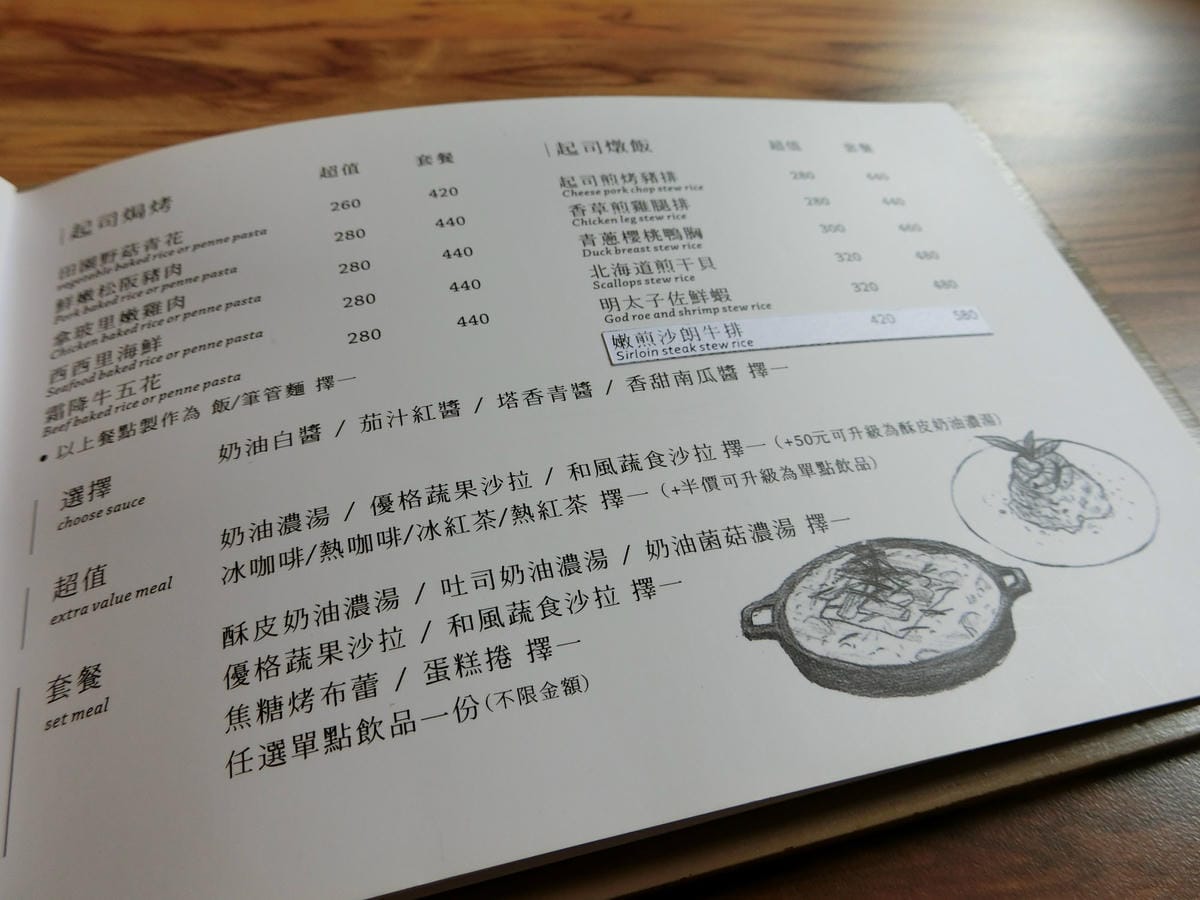 起司焗烤 超值 套餐
田園野菇青花 260 420
vegetable baked rice or penne pasta
鮮嫩松阪豬肉 280 440
Pork baked rice or penne pasta
拿玻里嫩雞肉 280 440
Chicken baked rice or penne pasta
西西里海鮮 280 440
Seafood baked rice or penne pasta
霜降牛五花 280 440
Beef baked rice or penne pasta
• 以上餐點製作為 飯/筆管麵 擇一
起司燉飯 超值 套餐
起司煎烤豬排 280 440
Cheese pork chop stew rice
香草煎雞腿排 280 440
Chicken leg stew rice
青蔥櫻桃鴨胸 300 460
Duck breast stew rice
北海道煎干貝 320 480
Scallops stew rice
明太子佐鮮蝦 320 480
God roe and shrimp stew rice
嫩煎沙朗牛排 420 580
Sirloin steak stew rice
選擇 奶油白醬 / 茄汁紅醬 / 塔香青醬 / 香甜南瓜醬 擇一
choose sauce
超值 奶油濃湯 / 優格蔬果沙拉 / 和風蔬食沙拉 擇一 (+50元可升級為酥皮奶油濃湯)
extra value meal 冰咖啡/熱咖啡/冰紅茶/熱紅茶 擇一 (+半價可升級為單點飲品)
套餐 酥皮奶油濃湯 / 吐司奶油濃湯 / 奶油菌菇濃湯 擇一
set meal 優格蔬果沙拉 / 和風蔬食沙拉 擇一
焦糖烤布蕾 / 蛋糕捲 擇一
任選單點飲品一份(不限金額)